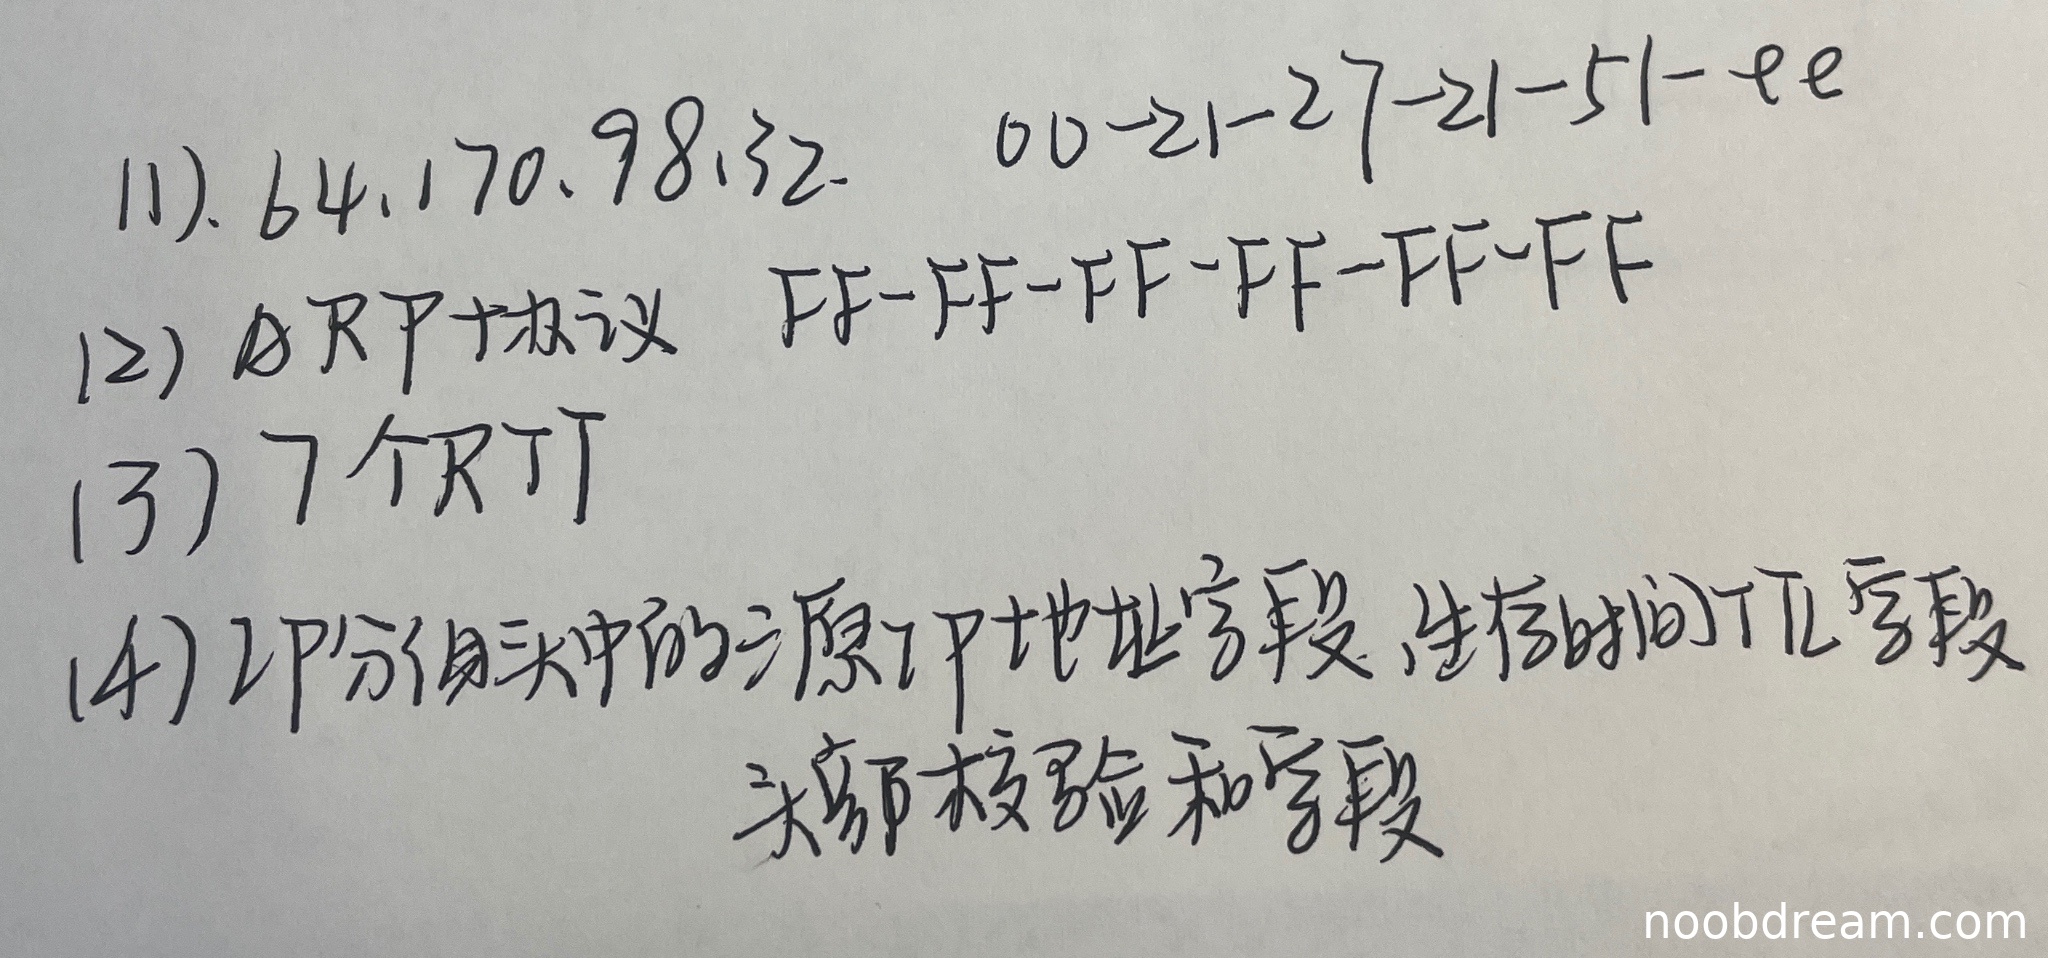 (1). 64.170.98.32. 00-21-27-21-51-ee
(2) ARP协议 FF-FF-FF-FF-FF-FF
(3) 7个RTT
(4) IP分组头中的源IP地址字段、生存时间TTL字段
头部校验和字段
noobdream.com